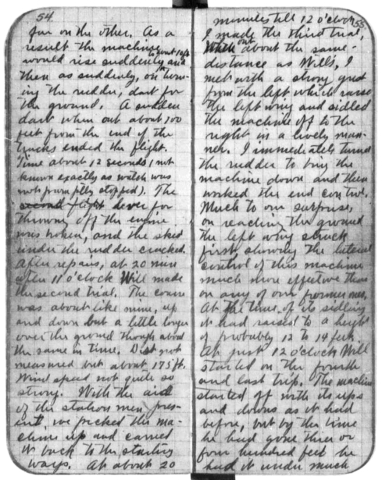 54
far on the other. As a
result the machine would rise suddenly to about 10 ft.
and then as suddenly, on turn-
ing the rudder, dart for
the ground. A sudden
dart when out about 100
feet from the end of the
tracks ended the flight.
Time about 12 seconds (not
known exactly as watch was
not promptly stopped). The
lever for
throwing off the engine
was broken, and the skid
under the rudder cracked.
After repairs, at 20 min
after 11 o'clock Will made
the second trial. The course
was about like mine, up
and down but a little longer
over the ground though about
the same in time. Dist not
measured but about 175 ft.
Wind speed not quite so
strong. With the aid
of the station men pres-
ent, we picked the ma-
chine up and carried
it back to the starting
ways. At about 20
55
minutes till 12 o'clock
I made the third trial.
When out about the same
distance as Will's, I
met with a strong gust
from the left which raised
the left wing and sidled
the machine off to the
right in a lively man-
ner. I immediately turned
the rudder to bring the
machine down and then
worked the end control.
Much to our surprise,
on reaching the ground
the left wing struck
first, showing the lateral
control of this machine
much more effective than
on any of our former ones.
At the time of its sidling
it had raised to a height
of probably 12 to 14 feet.
At just 12 o'clock Will
started on the fourth
and last trip. The machine
started off with its ups
and downs as it had
before, but by the time
he had gone three or
four hundred feet he
had it under much